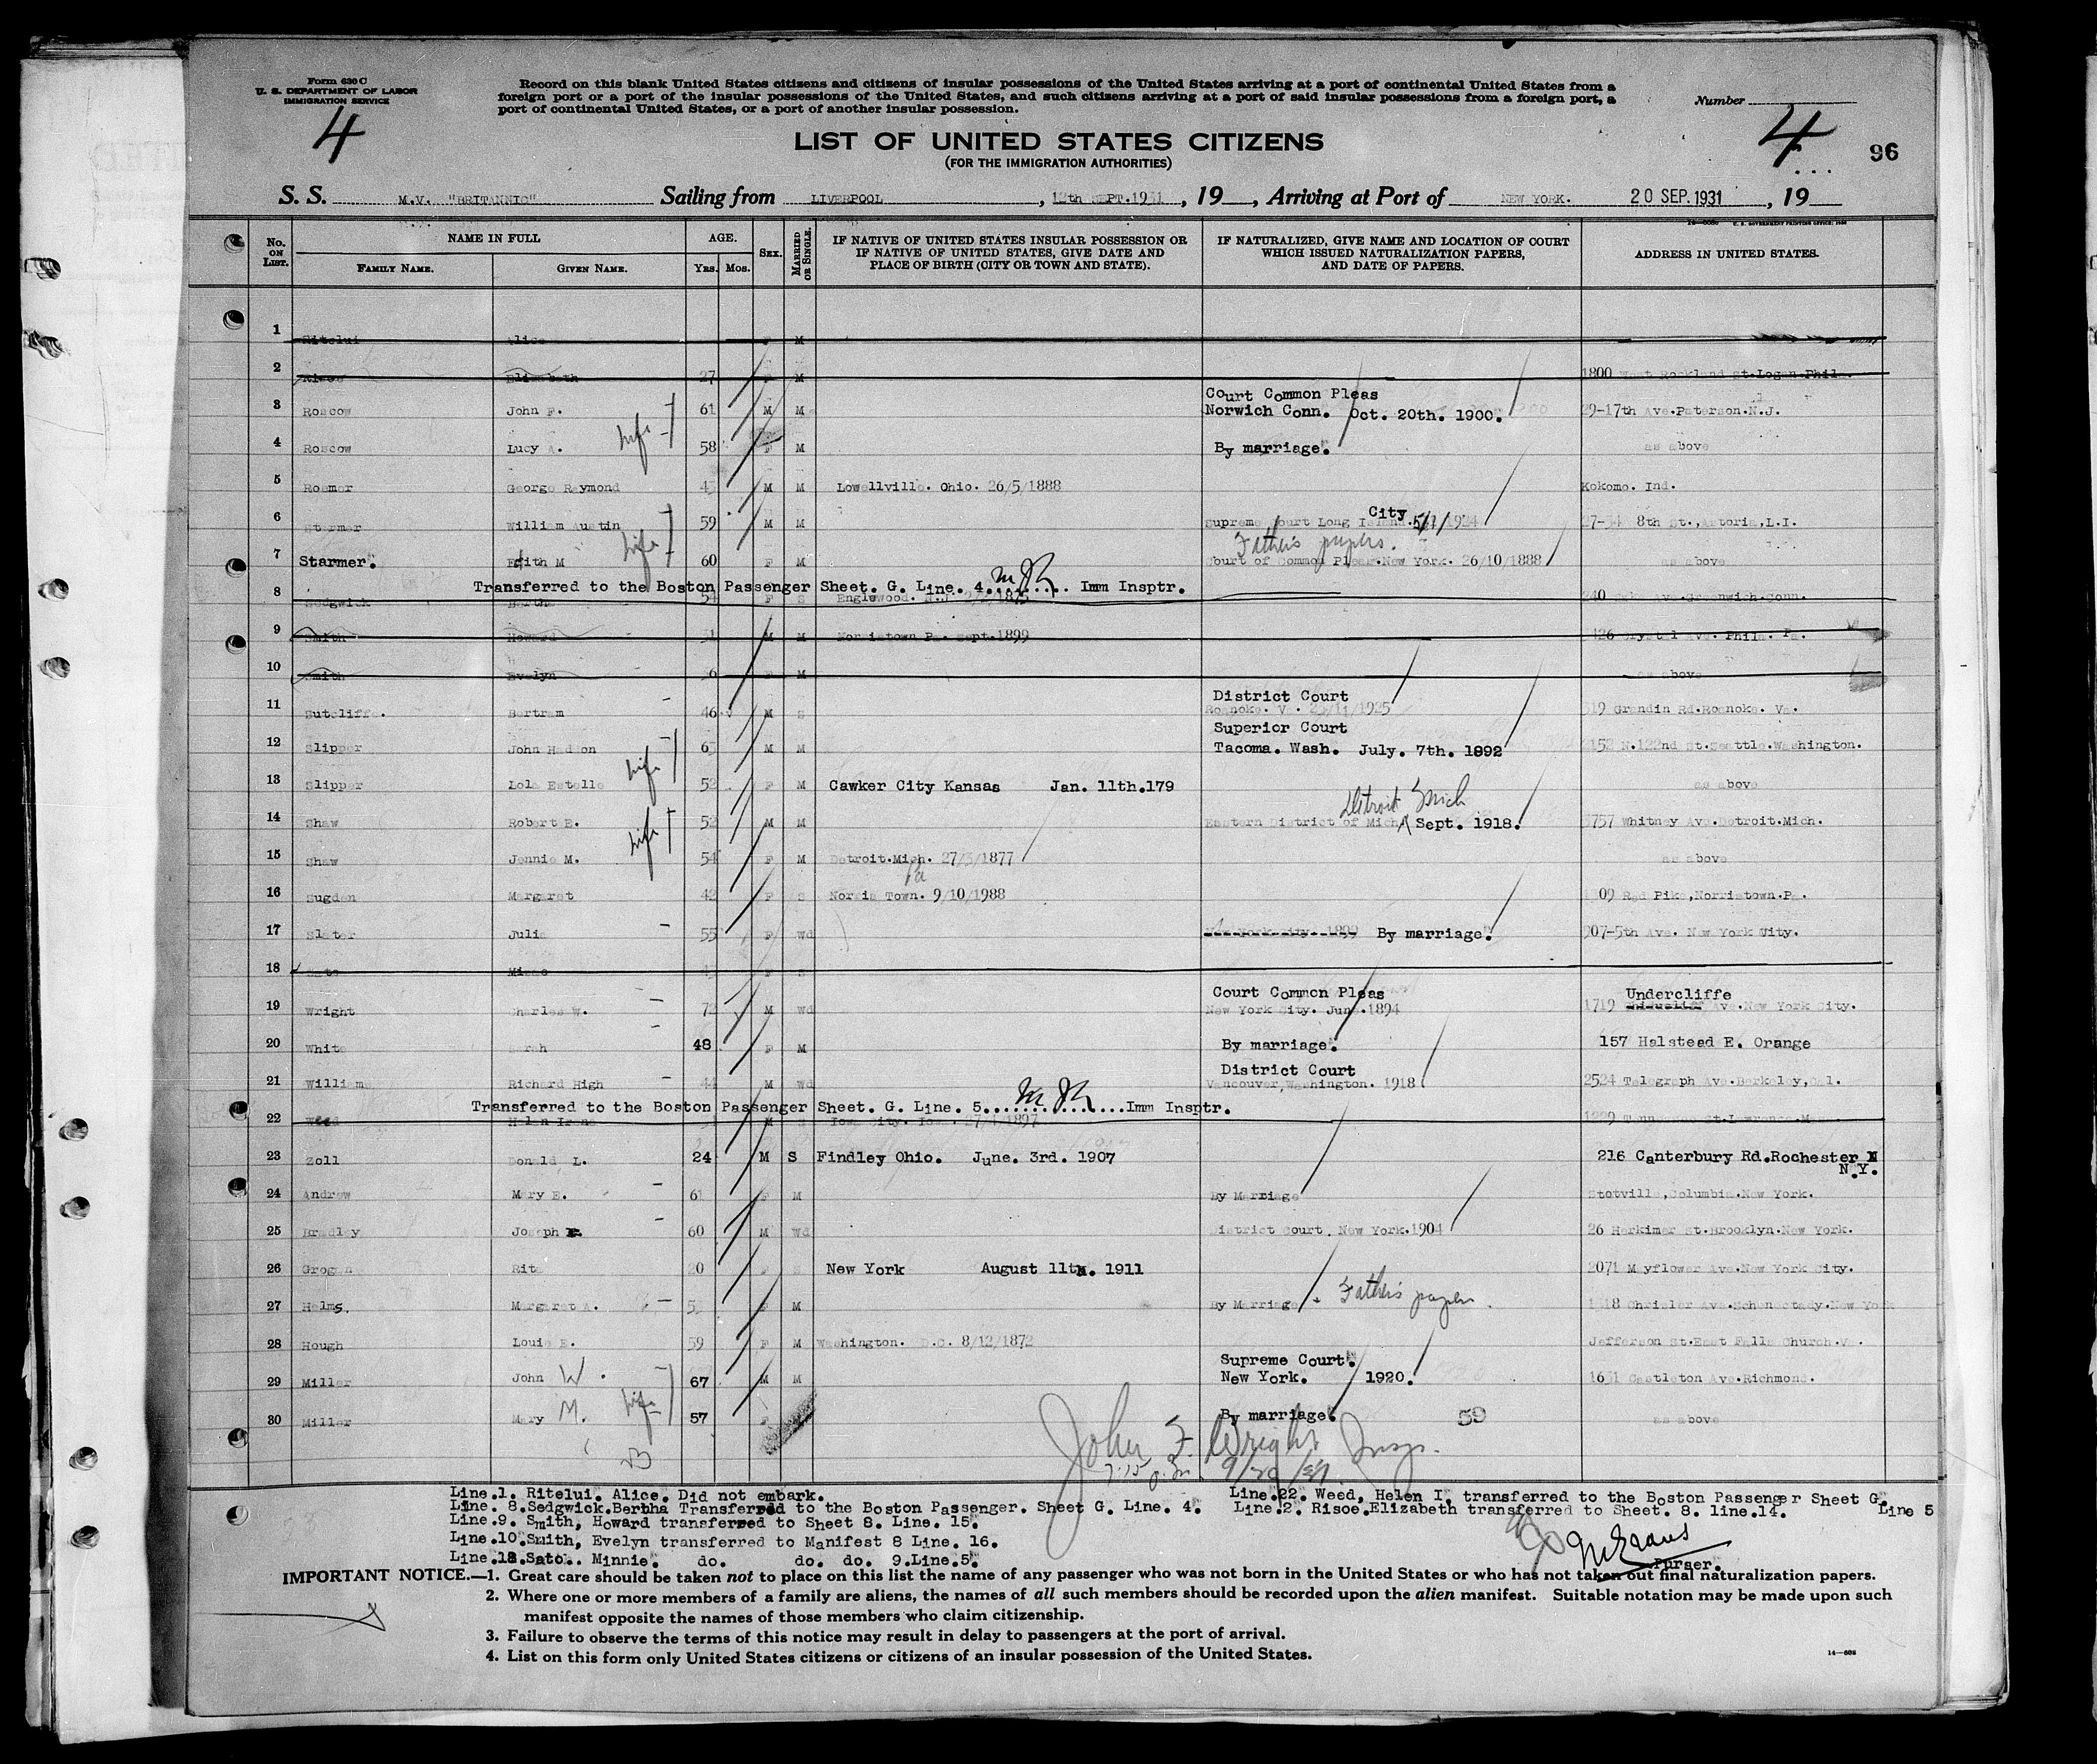 Form 630 C
U. S. DEPARTMENT OF LABOR
IMMIGRATION SERVICE
Record on this blank United States citizens and citizens of insular possessions of the United States arriving at a port of continental United States from a
foreign port or a port of the insular possessions of the United States, and such citizens arriving at a port of said insular possessions from a foreign port, a
port of continental United States, or a port of another insular possession.
Number
4
4
96
LIST OF UNITED STATES CITIZENS
(FOR THE IMMIGRATION AUTHORITIES)
S. S. M.V. "BRITANNIC" Sailing from LIVERPOOL, 12th SEPT. 1931, 19__, Arriving at Port of NEW YORK. 20 SEP. 1931, 19
No. ON LIST. NAME IN FULL AGE. SEX. MARRIED OR SINGLE. IF NATIVE OF UNITED STATES INSULAR POSSESSION OR IF NATIVE OF UNITED STATES, GIVE DATE AND PLACE OF BIRTH (CITY OR TOWN AND STATE). IF NATURALIZED, GIVE NAME AND LOCATION OF COURT WHICH ISSUED NATURALIZATION PAPERS, AND DATE OF PAPERS. ADDRESS IN UNITED STATES.
FAMILY NAME. GIVEN NAME. YRS. MOS.
1 Ritelui Alice F M
2 Elizabeth 27 F M 1800 West Rockland St. Logan. Phila.
Court Common Pleas
3 Roscow John F. 61 M M Norwich Conn. Oct. 20th. 1900. 29-17th Ave. Paterson. N.J.
4 Roscow Lucy A. wife 58 F M By marriage. as above
5 Roemer George Raymond 43 M M Lowellville. Ohio. 26/5/1888 Kokomo. Ind.
City
6 Starmer William Austin 59 M M Supreme Court Long Island. 5/1/1924 8th St., Astoria, L.I.
Father's papers.
7 Starmer. Edith M wife 60 F M Court of Common Pleas. New York. 26/10/1888 as above
Transferred to the Boston Passenger Sheet. G. Line. 4. Imm Insptr.
8 Sedgwick Bertha 54 F S Englewood. N.J. Ave. Greenwich. Conn.
9 Smith Howard 31 M M Norristown Pa. Sept. 1899 Crystal Ave. Phila. Pa.
10 Smith Evelyn F M as above
District Court
11 Sutcliffe. Bertram 46 M S Roanoke. Va. 1925 519 Grandin Rd. Roanoke. Va.
Superior Court
12 Slipper John Hadson M M Tacoma. Wash. July. 7th. 1892 N. 122nd St. Seattle. Washington.
13 Slipper Lola Estelle wife 52 F M Cawker City Kansas Jan. 11th. 179 as above
Detroit Mich
14 Shaw Robert E. 52 M M Eastern District of Mich Sept. 1918. 5757 Whitney Ave. Detroit. Mich.
15 Shaw Jennie M. wife 54 F M Detroit. Mich. 27/3/1877 as above
Pa
16 Sugden Margaret 42 F S Norris Town. 9/10/1988 Pike, Norristown. Pa.
17 Slater Julia 55 F Wd New York City 1899 By marriage. 907-5th Ave. New York City.
18 F S
Court Common Pleas Undercliffe
19 Wright Charles W. 72 M Wd New York City. June. 1894 1719 Ave. New York City.
20 White Sarah 48 F M By marriage. 157 Halstead E. Orange
District Court
21 Williams Richard High 44 M Wd Vancouver, Washington. 1918 2524 Telegraph Ave. Berkeley, Cal.
Transferred to the Boston Passenger Sheet. G. Line. 5. Imm Insptr.
22 Weed Helen Irene M S Iowa City. Iowa. 27/4/1897 St. Lawrence
23 Zoll Donald L. 24 M S Findley Ohio. June. 3rd. 1907 216 Canterbury Rd. Rochester N
N.Y.
24 Andrew Mary E. 61 F M By Marriage Stotville, Columbia. New York.
25 Bradley Joseph 60 M Wd District Court, New York. 1904 26 Herkimer St. Brooklyn. New York.
26 Grogan Rita 20 New York August 11th. 1911 2071 Mayflower Ave. New York City.
27 Helms. Margaret A. F M By Marriage Father's papers 1318 Chrisler Ave. Schenectady. New York
28 Hough Louie E. 59 F M Washington. D.C. 8/12/1872 Jefferson St. East Falls Church. Va.
Supreme Court.
29 Miller John W. 67 M M New York. 1920. 1651 Castleton Ave. Richmond.
30 Miller Mary M. wife 57 F By marriage. 59 as above
John F. Wright Insp.
7:15 p.m. 9/20/31
Line.1. Ritelui. Alice. Did not embark.
Line. 8. Sedgwick. Bertha Transferred to the Boston Passenger. Sheet G. Line. 4.
Line.9. Smith, Howard transferred to Sheet 8. Line. 15.
Line.10. Smith, Evelyn transferred to Manifest 8 Line. 16.
Line.18. Sato.. Minnie. do. do. do. 9. Line. 5.
Line.22. Weed, Helen I, transferred to the Boston Passenger Sheet G. Line 5
Line.2. Risoe. Elizabeth transferred to Sheet. 8. line. 14.
Purser.
IMPORTANT NOTICE.—1. Great care should be taken not to place on this list the name of any passenger who was not born in the United States or who has not taken out final naturalization papers.
2. Where one or more members of a family are aliens, the names of all such members should be recorded upon the alien manifest. Suitable notation may be made upon such
manifest opposite the names of those members who claim citizenship.
3. Failure to observe the terms of this notice may result in delay to passengers at the port of arrival.
4. List on this form only United States citizens or citizens of an insular possession of the United States.